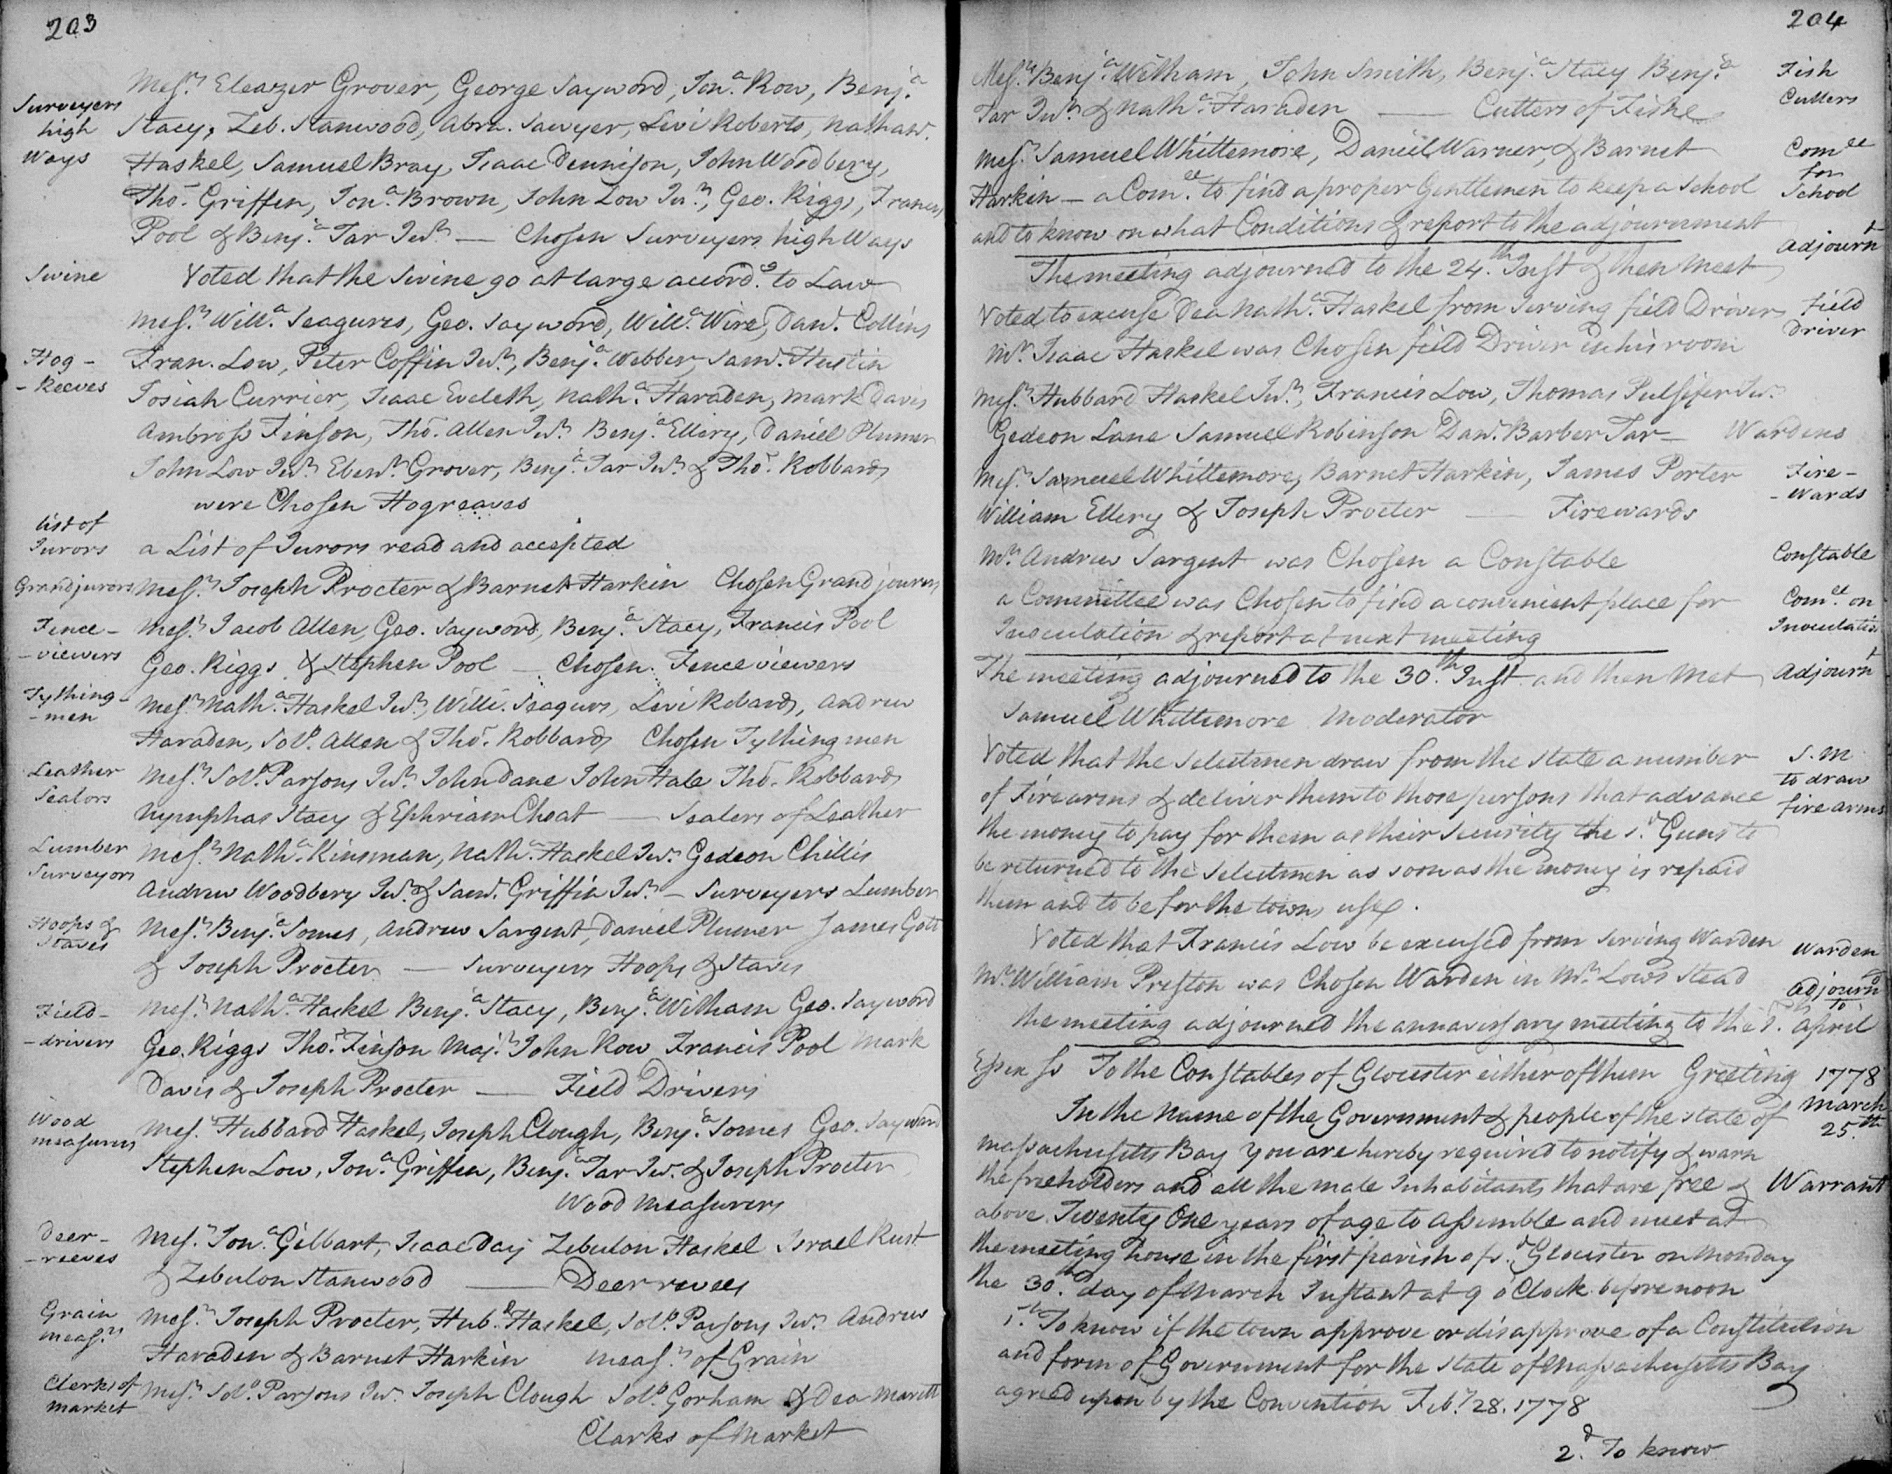 203
Mesrs. Eleazer Grover, George Sayword, Jona. Row, Benja.
Surveyers
high
Ways
Stacy, Zeb. Stanwood, Abra. Sawyer, Levi Roberts, Nathanl.
Haskel, Samuel Bray, Isaac Dennison, John Woodbery,
Thos. Griffen, Jona. Brown, John Low Junr, Geo. Riggs, Francis
Pool & Benja. Tar Junr — Chosen Surveyers high Ways
Swine
Voted that the Swine go at large accordg. to Law
Mesrs. Willa. Seagurs, Geo. Sayword, Willa. Wire, Danl. Collins
Hog -
- Reeves
Fran. Low, Peter Coffin Junr, Benja. Webber, Saml. Huslin
Josiah Currier, Isaac Eveleth, Natha. Haraden, Mark Davis
Ambross Finson, Thos. Allen Junr. Benja. Ellery, Daniel Plumer
John Low Junr. Ebenr. Grover, Benja. Tar Junr & Thos. Robbards
were Chosen Hogreaves
list of
Jurors
a List of Jurors read and accepted
Grandjurors
Mesrs. Joseph Procter & Barnet Harkin Chosen Grand jourors
Fence -
- viewers
Mesrs. Jacob Allen, Geo. Sayword, Benja. Stacy, Francis Pool
Geo. Riggs & Stephen Pool — Chosen Fence viewers
Tything -
- men
Mesrs. Natha. Haskel Junr, Willi. Seagurs, Levi Robards, Andrew
Haraden, Solo. Allen & Thos. Robbards Chosen Tything men
Leather
Sealors
Mesrs. Solo. Parsons Junr. John Dane John Hale Thos. Robbards
Nymphas Stacy & Ephriam Choat — Sealers of Leather
Lumber
Surveyors
Mesrs. Natha. Kinsman, Natha. Haskel Junr. Gedeon Chillis
Andrew Woodbery Junr. & Saml. Griffin Junr. — Surveyers Lumber
Hoops &
Staves
Mesrs. Benja. Somes, Andrew Sargent, Daniel Plumer James Gott
& Joseph Procter — Surveyers Hoops & Staves
Field -
- drivers
Mesrs. Natha. Haskel Benja. Stacy, Benja. Witham Geo. Sayword
Geo. Riggs Thos. Finson Majr. John Row Francis Pool Mark
Davis & Joseph Procter — Field Drivers
Wood
measurers
Mesrs. Hubbard Haskel, Joseph Clough, Benja. Somes Geo. Sayword
Stephen Low, Jona. Griffen, Benja. Tar Junr. & Joseph Procter
Wood Measurers
Deer -
- reeves
Mesrs. Jona. Gilbart, Isaac Day Zebulon Haskel Israel Rust
& Zebulon Stanwood — Deer revees
Grain
measrs
Mesrs. Joseph Procter, Hubd. Haskel, Solo. Parsons Junr. Andrew
Haraden & Barnet Harkin measrs. of Grain
Clerks of
market
Mesrs. Solo. Parsons Junr. Joseph Clough Solo. Gorham & Dea Marett
Clarks of Market
204
Mesrs. Benja. Witham, John Smith, Benja. Stacy Benja.
Fish
Cutters
Tar Junr. & Natha. Haraden — Cutters of Fish
Mesrs. Samuel Whittemore, Daniel Warner, & Barnet
Comtee
for
School
Harkin — a Comtee. to find a proper Gentlemen to keep a School
and to know on what Conditions & report to the adjournment
Adjournt
The meeting adjourned to the 24th. Inst & then meet
Voted to excuse Dea Natha. Haskel from Serving field Driver
Field
Driver
Mr. Isaac Haskel was Chosen field Driver in his room
Mesrs. Hubbard Haskel Junr, Francis Low, Thomas Pulsifer Junr.
Gedeon Lane Samuel Robinson Danl. Barber Tar — Wardens
Mesrs. Samuel Whittemore, Barnet Harkin, James Porter
Fire -
- wards
William Ellery & Joseph Procter — Firewards
Mr. Andrew Sargent was Chosen a Constable
Constable
a Committee was Chosen to find a convenient place for
Comtt. on
Inoculation
Inoculation & report at next meeting
The meeting adjourned to the 30th. Inst. and then Met
Adjournt
Samuel Whittemore Moderator
Voted that the Selectmen draw from the State a number
S. M
to draw
fire arms
of Fire arms & deliver them to those persons that advance
the money to pay for them as their Security the sd. Guns to
be returned to the Selectmen as soon as the money is repaid
them and to be for the towns use.
Voted that Francis Low be excused from Serving Warden
Warden
Mr. William Preston was Chosen Warden in Mr. Lows Stead
Adjournd
to
the meeting adjourned the annaversary meeting to the 7th. April
Essex Ss To the Constables of Glocester either of them Greeting
1778
March
25th.
In the Name of the Government & people of the State of
Massachusetts Bay you are hereby required to notify & warn
the freeholders and all the male Inhabitants that are free &
Warrant
above Twenty One years of age to assemble and meet at
the meeting house in the first parish of sd. Glocester on Monday
the 30th. day of March Instant at 9 o'Clock before noon
1st. To know if the town approve or disapprove of a Constitution
and form of Government for the State of Massachusetts Bay
agreed upon by the Convention Feby. 28. 1778
2d. To know